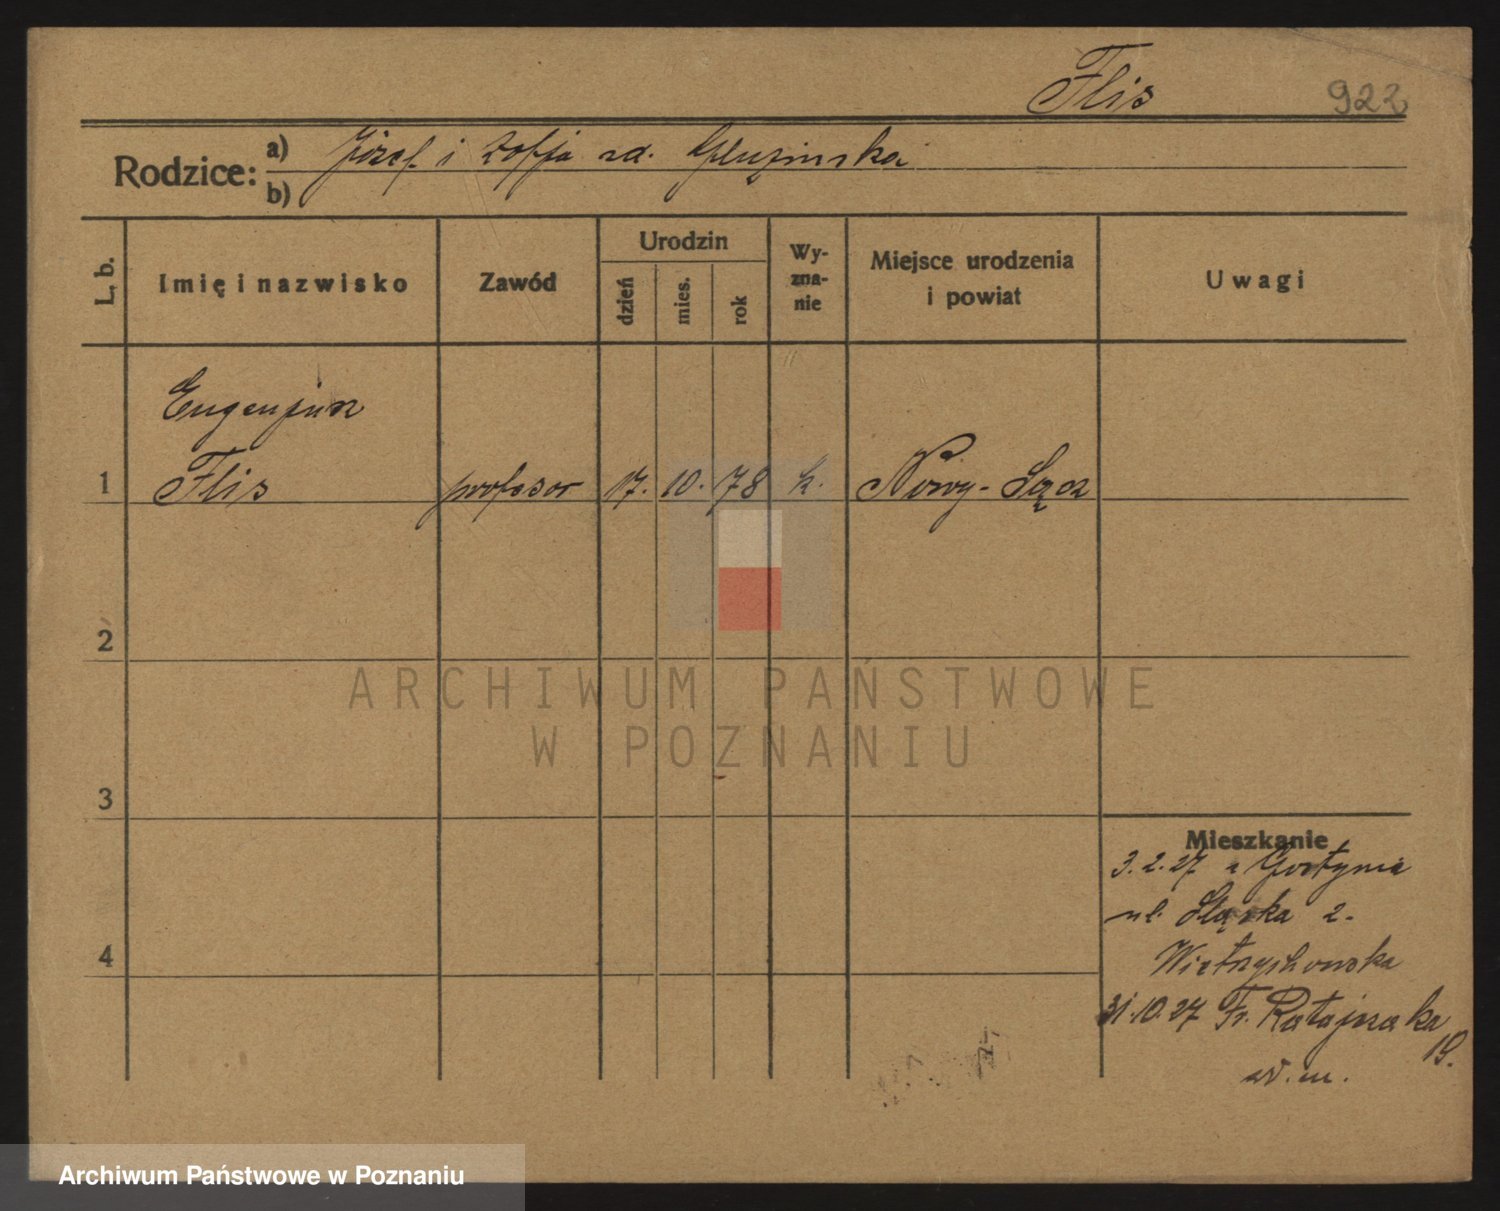 Flis 922
Rodzice: a) Józef i Zofja zd.
b)
L. b. Imię i nazwisko Zawód Urodzin dzień mies. rok Wy-zna-nie Miejsce urodzenia i powiat Uwagi
Eugenjusz
1 Flis profesor 17. 10. 78 k. Nowy-Sącz
2
ARCHIWUM PAŃSTWOWE
W POZNANIU
3
Mieszkanie
3.2.27 z Gostynia
ul. Śląska 2.
4
31.10.27 Fr. Ratajczaka
19.
w. m.
Archiwum Państwowe w Poznaniu